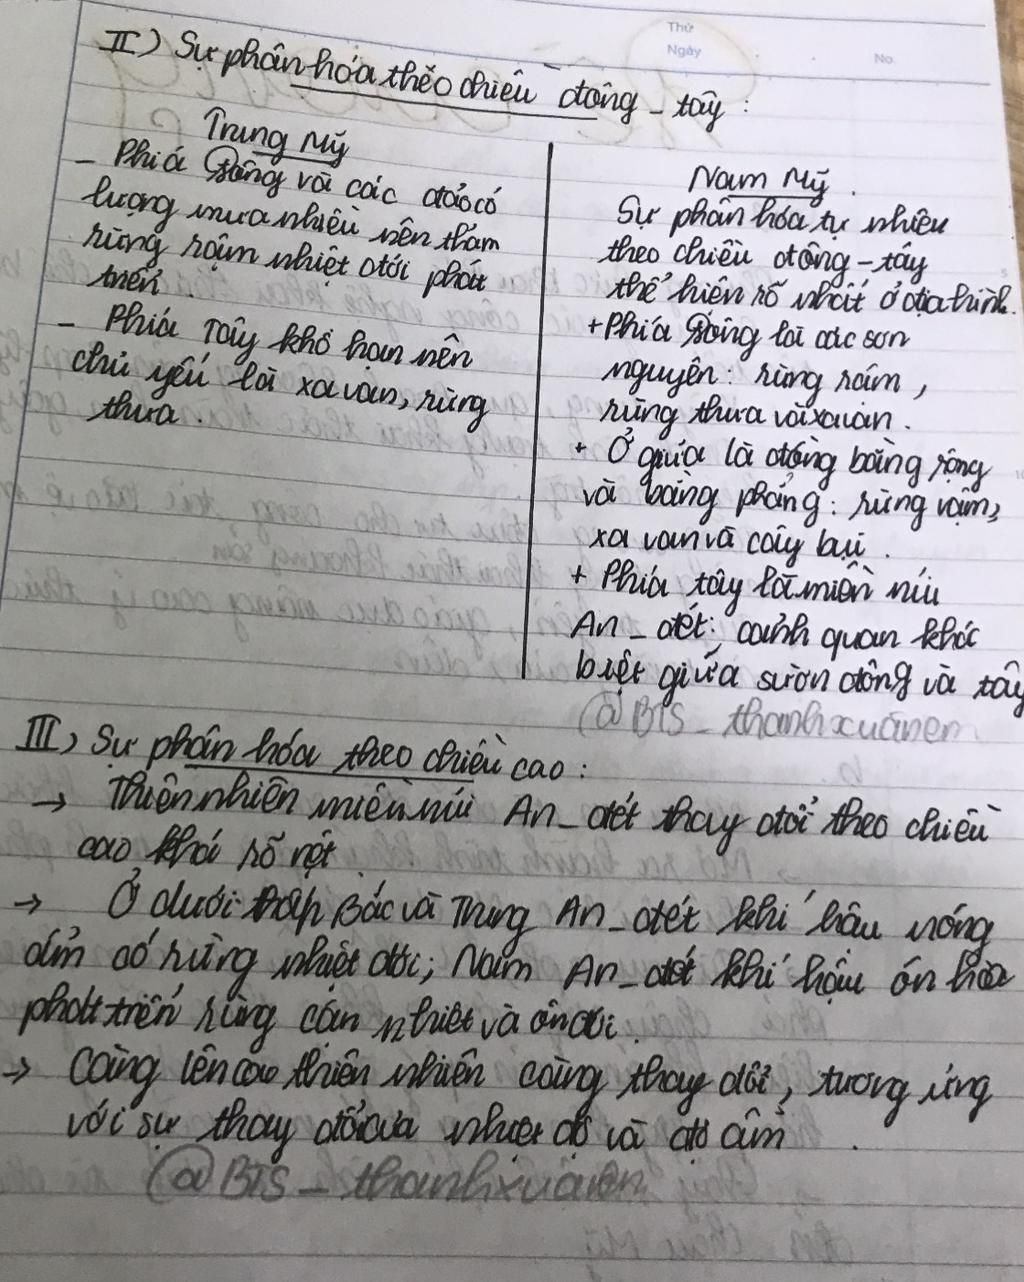 Thứ
Ngày
No
II) Sự phân hóa theo chiều đông - tây :
Trung Mỹ
- Phía Đông và các đảo có
lượng mưa nhiều nên thảm
rừng rậm nhiệt đới phát
triển.
- Phía Tây khô hạn nên
chủ yếu là xa van, rừng
thưa.
Nam Mỹ.
Sự phân hóa tự nhiên
theo chiều đông - tây
thể hiện rõ nhất ở địa hình.
+ Phía Đông là các sơn
nguyên: rừng rậm,
rừng thưa và xavan.
+ Ở giữa là đồng bằng rộng
và bằng phẳng: rừng rậm,
xa van và cây bụi.
+ Phía tây là miền núi
An_đét: cảnh quan khác
biệt giữa sườn đông và tây
@BTS_thanhxuanem
III) Sự phân hóa theo chiều cao :
→ Thiên nhiên miền núi An_đét thay đổi theo chiều
cao khá rõ rệt.
→ Ở dưới thấp Bắc và Trung An_đét khí hậu nóng
ẩm có rừng nhiệt đới; Nam An_đét khí hậu ôn hòa
phát triển rừng cận nhiệt và ôn đới.
→ Càng lên cao thiên nhiên càng thay đổi, tương ứng
với sự thay đổi của nhiệt độ và độ ẩm.
@BTS_thanhxuanem